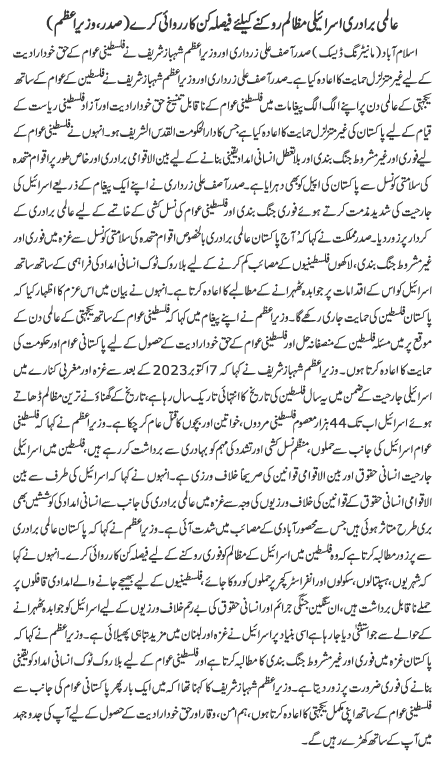 عالمی برادری اسرائیلی مظالم روکنے کیلئے فیصلہ کن کارروائی کرے (صدر، وزیراعظم)
اسلام آباد (مانیٹرنگ ڈیسک) صدر آصف علی زرداری اور وزیراعظم شہباز شریف نے فلسطینی عوام کے حق خودارادیت
کے لیے غیر متزلزل حمایت کا اعادہ کیا ہے۔ صدر آصف علی زرداری اور وزیراعظم شہباز شریف نے فلسطین کے عوام کے ساتھ
یکجہتی کے عالمی دن پر اپنے الگ الگ پیغامات میں فلسطینی عوام کے ناقابل تنسیخ حق خودارادیت اور آزاد فلسطینی ریاست کے
قیام کے لیے پاکستان کی غیر متزلزل حمایت کا اعادہ کیا ہے جس کا دارالحکومت القدس الشریف ہو۔ انہوں نے فلسطینی عوام کے
لیے فوری اور غیر مشروط جنگ بندی اور بلاتعطل انسانی امداد یقینی بنانے کے لیے بین الاقوامی برادری اور خاص طور پر اقوام متحدہ
کی سلامتی کونسل سے پاکستان کی اپیل کو بھی دہرایا ہے۔ صدر آصف علی زرداری نے اپنے ایک پیغام کے ذریعے اسرائیل کی
جارحیت کی شدید مذمت کرتے ہوئے فوری جنگ بندی اور فلسطینی عوام کی نسل کشی کے خاتمے کے لیے عالمی برادری کے
کردار پر زور دیا۔ صدر مملکت نے کہا کہ آج پاکستان عالمی برادری بالخصوص اقوام متحدہ کی سلامتی کونسل سے غزہ میں فوری اور
غیر مشروط جنگ بندی، لاکھوں فلسطینیوں کے مصائب کم کرنے کے لیے بلا روک ٹوک انسانی امداد کی فراہمی کے ساتھ ساتھ
اسرائیل کو اس کے اقدامات پر جوابدہ ٹھہرانے کے مطالبے کا اعادہ کرتا ہے۔ انہوں نے بیان میں اس عزم کا اظہار کیا کہ
پاکستان فلسطین کی حمایت جاری رکھے گا۔ وزیراعظم نے اپنے پیغام میں کہا کہ فلسطینی عوام کے ساتھ یکجہتی کے عالمی دن کے
موقع پر میں مسئلہ فلسطین کے منصفانہ حل اور فلسطینی عوام کے حق خودارادیت کے حصول کے لیے پاکستانی عوام اور حکومت کی
حمایت کا اعادہ کرتا ہوں۔ وزیراعظم شہباز شریف نے کہا کہ 7 اکتوبر 2023 کے بعد سے غزہ اور مغربی کنارے میں
اسرائیلی جارحیت کے ضمن میں یہ سال فلسطین کی تاریخ کا انتہائی تاریک سال رہا ہے، تاریخ کے گھناؤنے ترین مظالم ڈھاتے
ہوئے اسرائیل اب تک 44 ہزار معصوم فلسطینی مردوں، خواتین اور بچوں کا قتل عام کر چکا ہے۔ وزیراعظم نے کہا کہ فلسطینی
عوام اسرائیل کی جانب سے حملوں، منظم نسل کشی اور تشدد کی مہم کو بہادری سے برداشت کر رہے ہیں، فلسطین میں اسرائیلی
جارحیت انسانی حقوق اور بین الاقوامی قوانین کی صریحاً خلاف ورزی ہے۔ انہوں نے کہا کہ اسرائیل کی طرف سے بین
الاقوامی انسانی حقوق کے قوانین کی خلاف ورزیوں کی وجہ سے غزہ میں عالمی برادری کی جانب سے انسانی امداد کی کوششیں بھی
بری طرح متاثر ہوئی ہیں جس سے محصور آبادی کے مصائب میں شدت آئی ہے۔ وزیراعظم نے کہا کہ پاکستان عالمی برادری
سے پر زور مطالبہ کرتا ہے کہ وہ فلسطین میں اسرائیل کے مظالم کو فوری روکنے کے لیے فیصلہ کن کارروائی کرے۔ انہوں نے کہا
کہ شہریوں، ہسپتالوں، سکولوں اور انفراسٹرکچر پر حملوں کو روکا جائے، فلسطینیوں کے لیے بھیجے جانے والے امدادی قافلوں پر
حملے ناقابل برداشت ہیں، ان سنگین جنگی جرائم اور انسانی حقوق کی بے رحم خلاف ورزیوں کے لیے اسرائیل کو جوابدہ ٹھہرانے
کے حوالے سے جو استثنیٰ دیا جا رہا ہے اسی بنیاد پر اسرائیل نے غزہ اور لبنان میں مزید تباہی پھیلائی ہے۔ وزیراعظم نے کہا کہ
پاکستان غزہ میں فوری اور غیر مشروط جنگ بندی کا مطالبہ کرتا ہے اور فلسطینی عوام کے لیے بلا روک ٹوک انسانی امداد کو یقینی
بنانے کی فوری ضرورت پر زور دیتا ہے۔ وزیراعظم شہباز شریف کا کہنا تھا کہ میں ایک بار پھر پاکستانی عوام کی جانب سے
فلسطینی عوام کے ساتھ اپنی مکمل یکجہتی کا اعادہ کرتا ہوں، ہم امن، وقار اور حق خودارادیت کے حصول کے لیے آپ کی جدوجہد
میں آپ کے ساتھ کھڑے رہیں گے۔